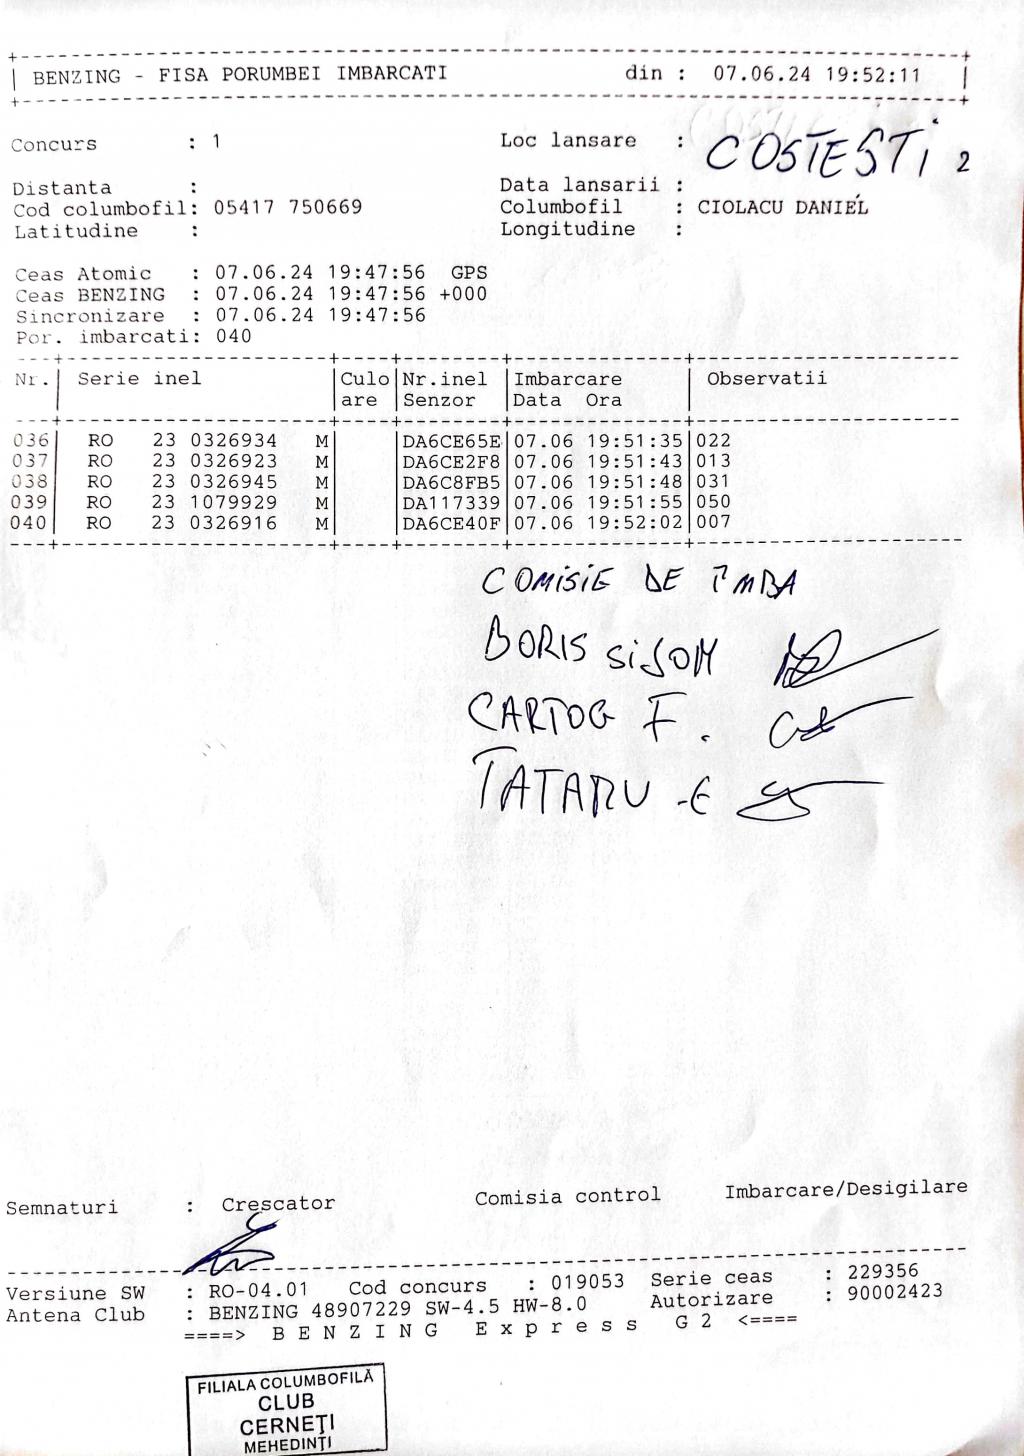 BENZING - FISA PORUMBEI IMBARCATI din : 07.06.24 19:52:11
Concurs : 1 Loc lansare : COSTESTI 2
Distanta : Data lansarii :
Cod columbofil: 05417 750669 Columbofil : CIOLACU DANIEL
Latitudine : Longitudine :
Ceas Atomic : 07.06.24 19:47:56 GPS
Ceas BENZING : 07.06.24 19:47:56 +000
Sincronizare : 07.06.24 19:47:56
Por. imbarcati: 040
Nr. Serie inel Culo Nr.inel Imbarcare Observatii
are Senzor Data Ora
036 RO 23 0326934 M DA6CE65E 07.06 19:51:35 022
037 RO 23 0326923 M DA6CE2F8 07.06 19:51:43 013
038 RO 23 0326945 M DA6C8FB5 07.06 19:51:48 031
039 RO 23 1079929 M DA117339 07.06 19:51:55 050
040 RO 23 0326916 M DA6CE40F 07.06 19:52:02 007
COMISIE DE IMBA
BORIS
CARTOG F.
TATARU -E
Semnaturi : Crescator Comisia control Imbarcare/Desigilare
Versiune SW : RO-04.01 Cod concurs : 019053 Serie ceas : 229356
Antena Club : BENZING 48907229 SW-4.5 HW-8.0 Autorizare : 90002423
====> B E N Z I N G E x p r e s s G 2 <====
FILIALA COLUMBOFILĂ
CLUB
CERNEȚI
MEHEDINȚI